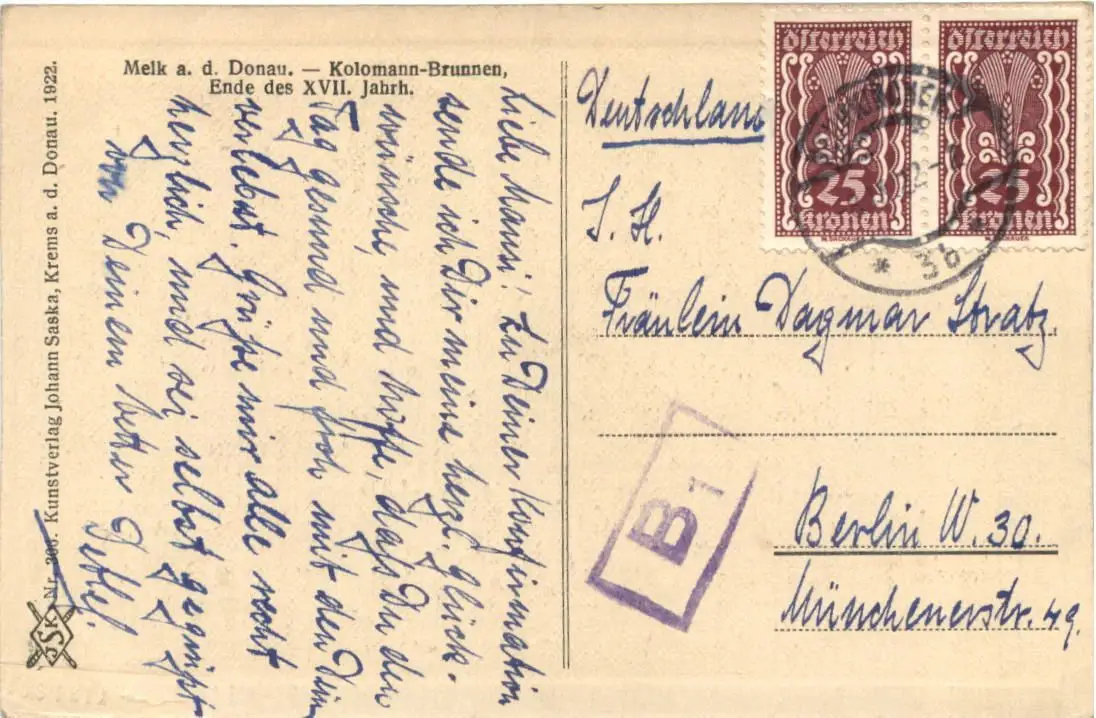 Melk a. d. Donau. — Kolomann-Brunnen,
Ende des XVII. Jahrh.
Nr. 300. Kunstverlag Johann Saska, Krems a. d. Donau. 1922.
JSK
Liebe Mausi! Zu Deiner Konfirmation
sende ich Dir meine herzl. Glück-
wünsche, und hoffe, daß Du den
Tag gesund und froh mit den Dein
verlebst. Grüße mir alle recht
herzlich, und sei selbst gegrüßt
von Deinem Vetter Detlef.
Deutschland
Österreich
25
Kronen
Österreich
25
Kronen
* 3b
S. H.
Fräulein Dagmar Stratz.
B1
Berlin W. 30.
Münchenerstr. 49.